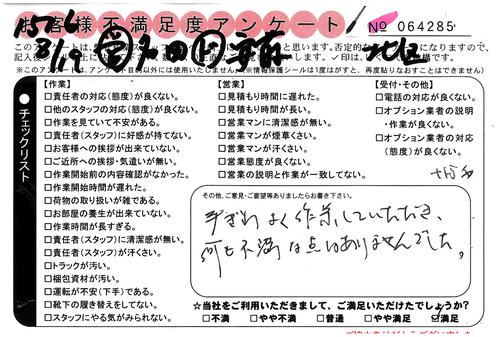 お客様不満足度アンケート
№ 064285
【作業】
□責任者の対応(態度)が良くない。
□他のスタッフの対応(態度)が良くない。
□作業を見ていて不安がある。
□責任者(スタッフ)に好感が持てない。
□お客様への挨拶が出来ていない。
□ご近所への挨拶・気遣いが無い。
□作業開始前の内容確認がなかった。
□作業開始時間が遅れた。
□荷物の取り扱いが雑である。
□お部屋の養生が出来ていない。
□作業時間が長すぎる。
□責任者(スタッフ)に清潔感が無い。
□責任者(スタッフ)が汗くさい。
□トラックが汚い。
□梱包資材が汚い。
□運転が不安(下手)である。
□靴下の履き替えをしてない。
□スタッフにやる気がみられない。
【営業】
□見積もり時間に遅れた。
□見積もり時間が長い。
□営業マンに清潔感が無い。
□営業マンが煙草くさい。
□営業マンが汗くさい。
□営業態度が良くない。
□営業の説明と作業が一致してない。
【受付・その他】
□電話の対応が良くない。
□オプション業者の説明
・作業が良くない。
□オプション業者の対応
(態度)が良くない。
チェックリスト
その他、ご意見・ご要望等ありましたらお書き下さい。
手ぎわよく作業していただき、
何も不満な点はありませんでした。
☆当社をご利用いただきまして、ご満足いただけたでしょうか?
□不満 □やや不満 □普通 □やや満足 ☑満足